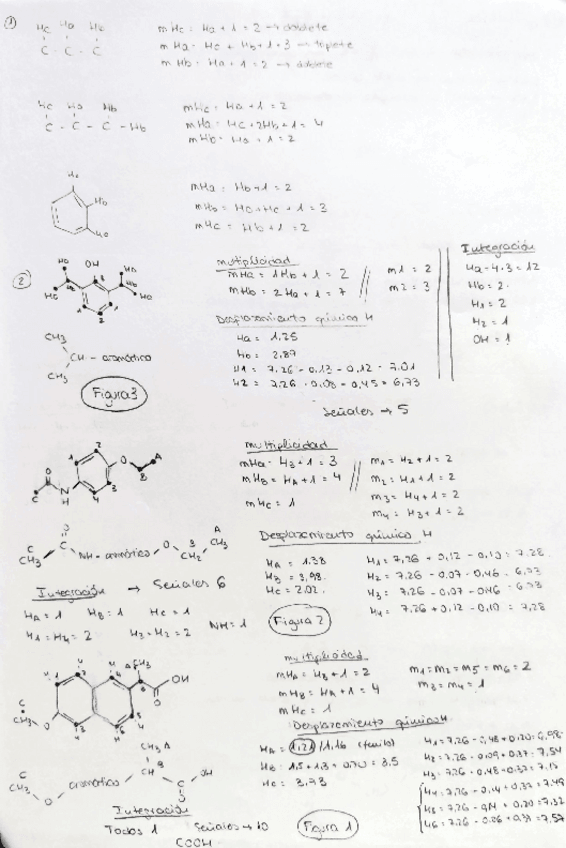 ①
Hc Ha Hc
C - C - C
mHc = Ha + 1 = 2 → doblete
mHa = Hc + Hb + 1 = 3 → triplete
mHb = Ha + 1 = 2 → doblete
Hc Ha Hb
C - C - C - Hb
mHc = Ha + 1 = 2
mHa = Hc + 2Hb + 1 = 4
mHb = Ha + 1 = 2
Ha
Hb
Hc
mHa = Hb + 1 = 2
mHb = Ha + Hc + 1 = 3
mHc = Hb + 1 = 2
②
OH
multiplicidad
mHa = 1Hb + 1 = 2
mHb = 2Ha + 1 = 7
m1 = 2
m2 = 3
Integración
Ha = 4·3 = 12
Hb = 2
H1 = 2
H2 = 1
OH = 1
Desplazamiento químico H
Ha = 1,25
Hb = 2,87
H1 = 7,26 - 0,13 - 0,12 = 7,01
H2 = 7,26 - 0,08 - 0,45 = 6,73
CH3
CH - aromático
CH3
Figura 3
Señales → 5
multiplicidad
mHA = HB + 1 = 3
mHB = HA + 1 = 4
mHc = 1
m1 = H2 + 1 = 2
m2 = H1 + 1 = 2
m3 = H4 + 1 = 2
m4 = H3 + 1 = 2
CH3 C NH - aromático O CH2 CH3
Desplazamiento químico H
HA = 1,38
HB = 3,98
Hc = 2,02
H1 = 7,26 + 0,12 - 0,10 = 7,28
H2 = 7,26 - 0,07 - 0,46 = 6,73
H3 = 7,26 - 0,07 - 0,46 = 6,73
H4 = 7,26 + 0,12 - 0,10 = 7,28
Integración → Señales 6
HA = 1 HB = 1 Hc = 1
H1 = H4 = 2 H3 = H2 = 2 NH = 1
Figura 2
multiplicidad
mHA = HB + 1 = 2
mHB = HA + 1 = 4
mHc = 1
m1 = m2 = m5 = m6 = 2
m3 = m4 = 1
Desplazamiento químico H
HA = 1,21 / 1,16
HB = 1,5 + 1,3 + 0,70 = 3,5
Hc = 3,73
H1 = 7,26 - 0,48 + 0,20 = 6,98
H2 = 7,26 - 0,09 + 0,37 = 7,54
H4 = 7,26 - 0,14 + 0,37 = 7,49
H5 = 7,26 - 0,14 + 0,20 = 7,32
OH
aromático
Integración
Todos 1 Señales → 10
COOH
Figura 1